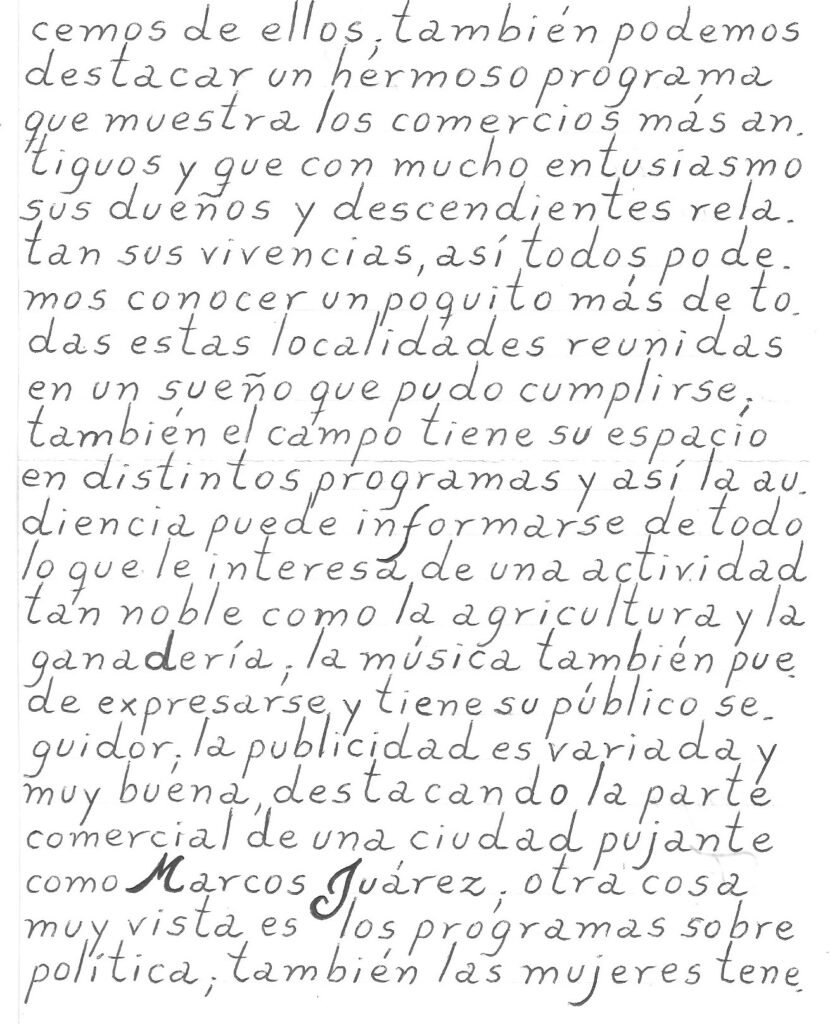 cemos de ellos; también podemos
destacar un hermoso programa
que muestra los comercios más an-
tiguos y que con mucho entusiasmo
sus dueños y descendientes rela-
tan sus vivencias, así todos pode-
mos conocer un poquito más de to-
das estas localidades reunidas
en un sueño que pudo cumplirse;
también el campo tiene su espacio
en distintos programas y así la au-
diencia puede informarse de todo
lo que le interesa de una actividad
tan noble como la agricultura y la
ganadería; la música también pue-
de expresarse y tiene su público se-
guidor; la publicidad es variada y
muy buena, destacando la parte
comercial de una ciudad pujante
como Marcos Juárez; otra cosa
muy vista es los programas sobre
política; también las mujeres tene-